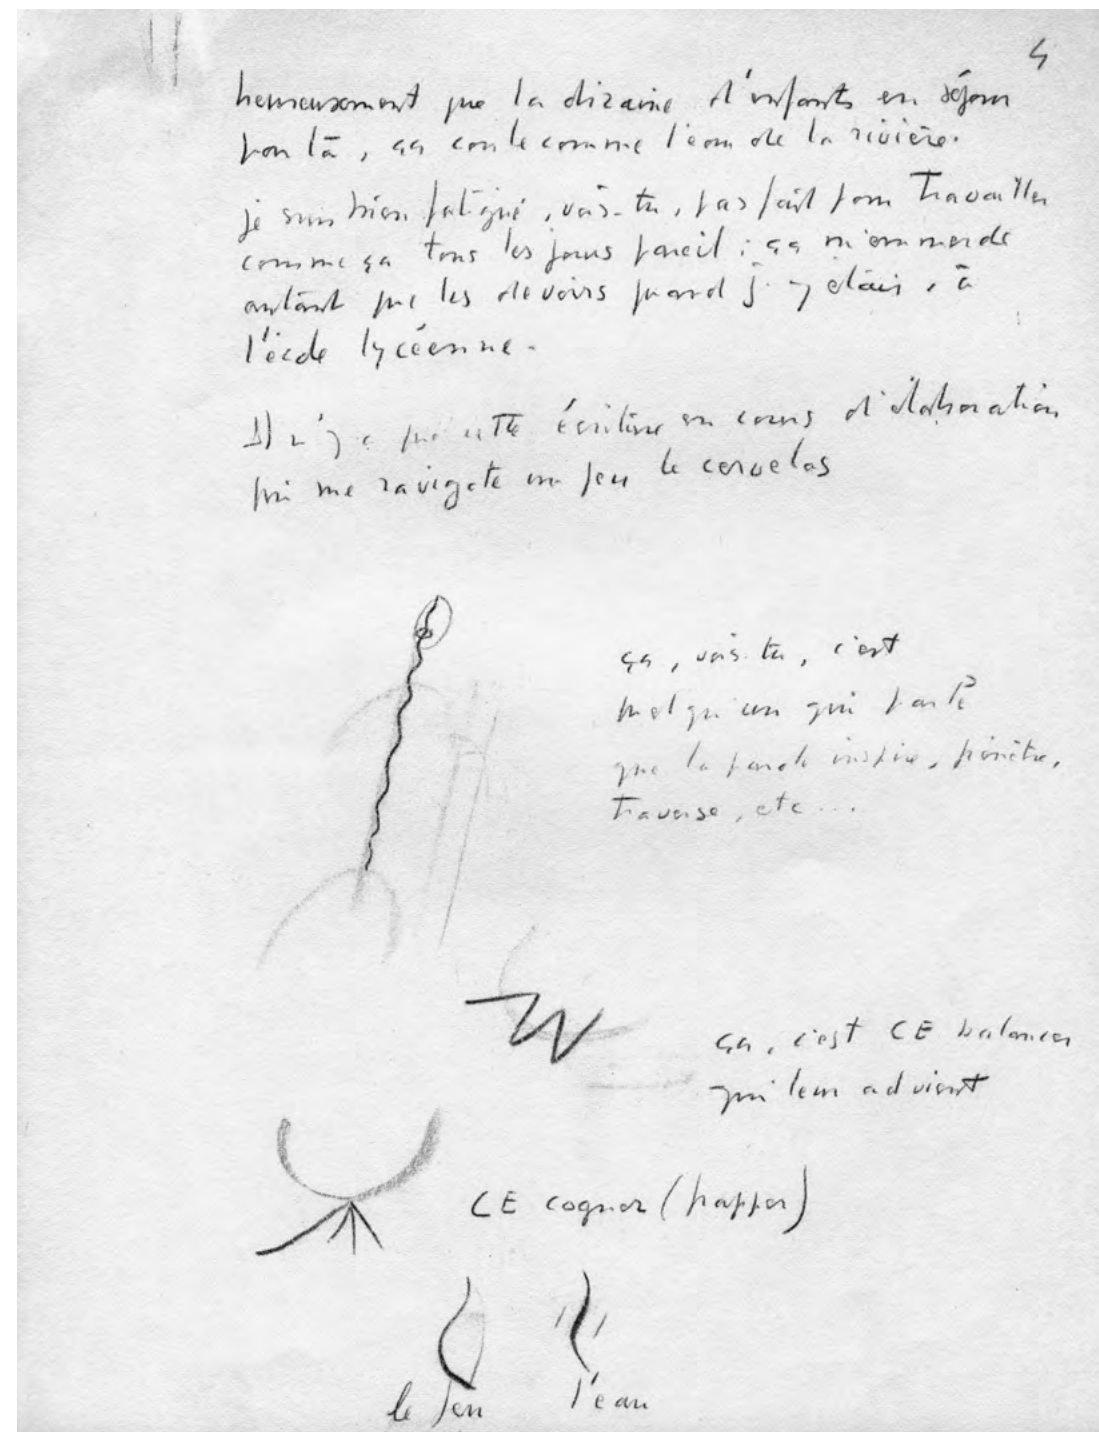 4
heureusement que la dizaine d'enfants en séjour
par là, ça coule comme l'eau de la rivière.
je suis bien fatigué, vois-tu, pas fait pour travailler
comme ça tous les jours pareil ; ça m'emmerde
autant que les devoirs quand j'y étais, à
l'école lycéenne.
Il n'y a que cette écriture en cours d'élaboration
qui me ravigote un peu le cervelas
ça, vois-tu, c'est
quelqu'un qui parle
que la parole inspire, pénètre,
traverse, etc...
ça, c'est CE balancer
qui leur advient
CE cogner (frapper)
le feu l'eau